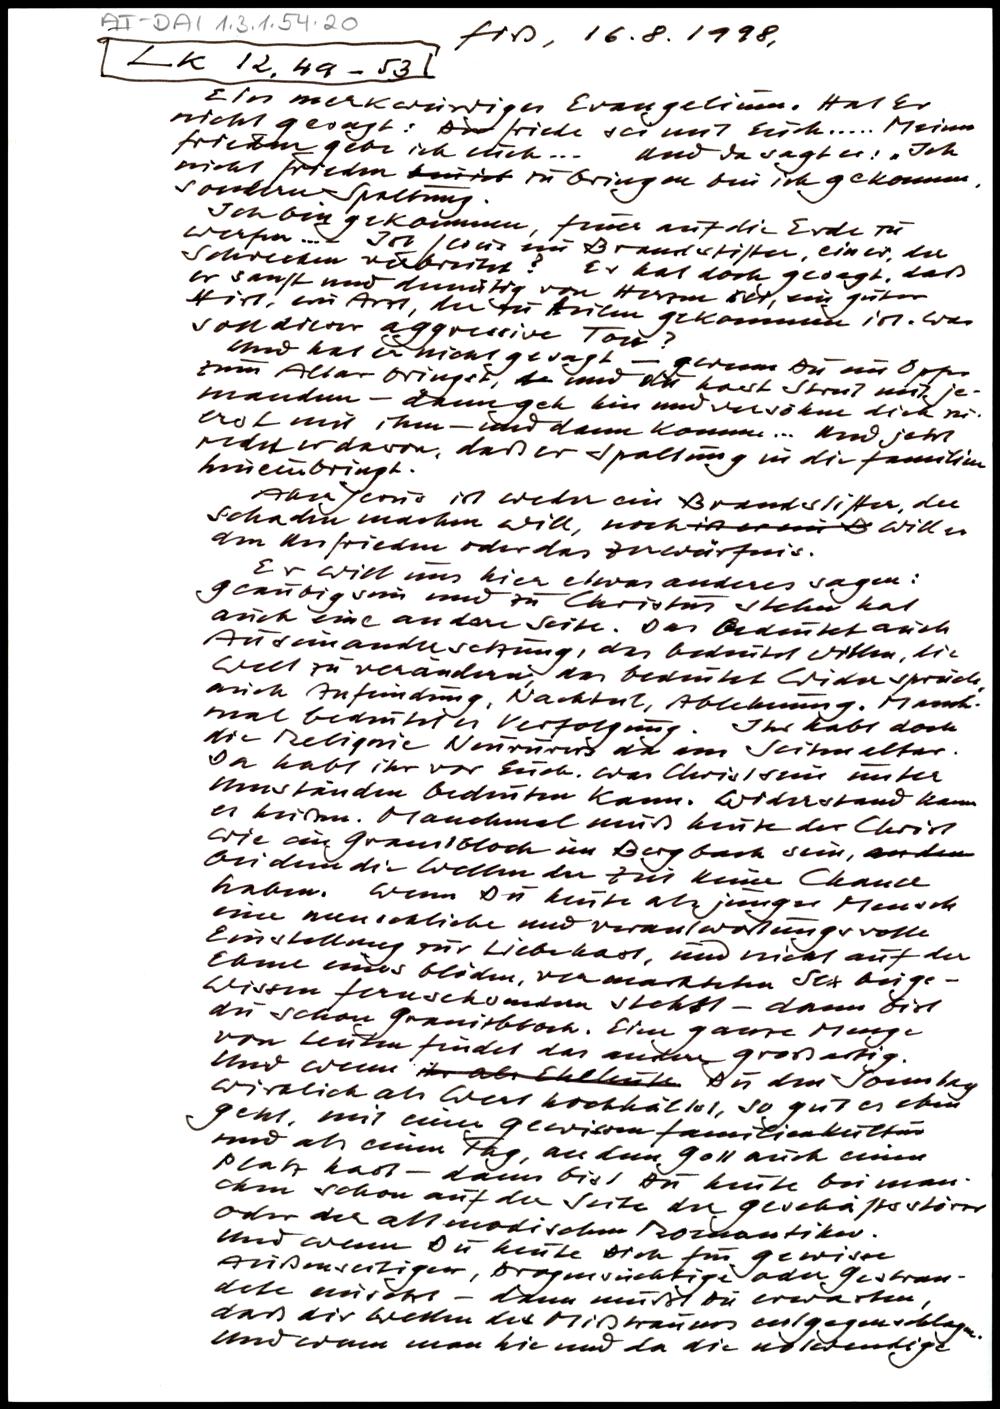 AI-DAI 1.3.1.54.20
Fiß, 16.8.1998,
Lk 12, 49-53
Ein merkwürdiges Evangelium. Hat Er
nicht gesagt: Der Friede sei mit Euch..... Meinen
Frieden gebe ich euch... Und da sagt er: "Ich
nicht Frieden zu bringen bin ich gekommen,
sondern Spaltung.
Ich bin gekommen, Feuer auf die Erde zu
werfen... Ist Jesus ein Brandstifter, einer, der
Schrecken verbreitet? Er hat doch gesagt, daß
er sanft und demütig von Herzen sei, ein guter
Hirt, ein Arzt, der zu heilen gekommen ist. Was
soll dieser aggressive Ton?
Und hat er nicht gesagt - wenn Du ein Opfer
zum Altar bringst, und du hast Streit mit je-
mandem - dann geh hin und versöhne dich zu-
erst mit ihm - und dann komme... Und jetzt
redet er davon, daß er Spaltung in die Familien
hineinbringt.
Aber Jesus ist weder ein Brandstifter, der
Schaden machen will, noch will er
den Unfrieden oder das Zerwürfnis.
Er will uns hier etwas anderes sagen:
Gläubig sein und zu Christus stehn hat
auch eine andere Seite. Das bedeutet auch
Auseinandersetzung, das bedeutet Willen, die
Welt zu verändern, das bedeutet Widerspruch,
auch Anfeindung, Nachteil, Ablehnung. Manch-
mal bedeutet es Verfolgung. Ihr habt doch
die Reliquie Neururers da am Seitenaltar.
Da habt ihr vor Euch, was Christsein unter
Umständen bedeuten kann. Widerstand kann
es heißen. Manchmal muß heute der Christ
wie ein Granitblock im Bergbach sein,
bei dem die Wellen der Zeit keine Chance
haben. Wenn Du heute als junger Mensch
eine menschliche und verantwortungsvolle
Einstellung zur Liebe hast, und nicht auf der
Ebene eines blöden, vermarkteten Sex bei ge-
wissen Fernsehsendern stehst - dann bist
du schon Granitblock. Eine ganze Menge
von Leuten findet das andere großartig.
Und wenn Du den Sonntag
wirklich als Wert hochhältst, so gut es eben
geht, mit einer gewissen Familienkultur
und als einen Tag, an dem Gott auch einen
Platz hat - dann bist Du heute bei man-
chen schon auf der Seite der Geschäftsstörer
oder der altmodischen Romantiker.
Und wenn Du heute Dich für gewisse
Außenseitiger, Drogensüchtige oder Gestran-
dete einsetzt - dann mußt Du erwarten,
daß dir Wellen des Mißtrauens entgegenschlagen.
Und wenn man hie und da die notwendige